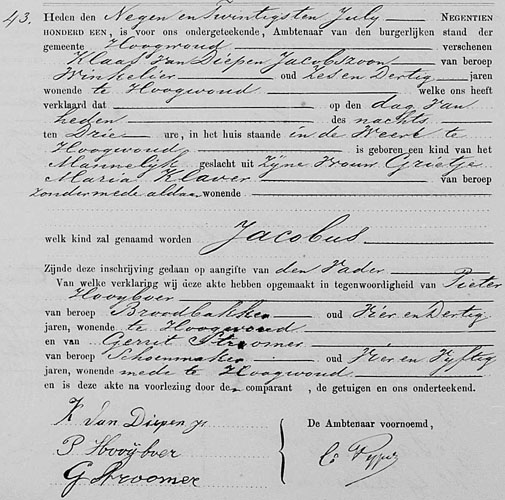 43. Heden den Negen en Twintigsten July NEGENTIEN
HONDERD EEN, is voor ons ondergeteekende, Ambtenaar van den burgerlijken stand der
gemeente Hoogwoud verschenen
Klaas van Diepen Jacobszoon van beroep
Winkelier oud Zes en Dertig jaren
wonende te Hoogwoud welke ons heeft
verklaard dat op den dag van
heden des nachts
ten Drie ure, in het huis staande in de Weere te
Hoogwoud is geboren een kind van het
Mannelijk geslacht uit Zijne Vrouw Grietje
Maria Klaver van beroep
zonder mede aldaar wonende
welk kind zal genaamd worden Jacobus
Zijnde deze inschrijving gedaan op aangifte van den Vader
Van welke verklaring wij deze akte hebben opgemaakt in tegenwoordigheid van Pieter
Hooyboer
van beroep Broodbakker oud Vier en Dertig
jaren, wonende te Hoogwoud
en van Gerrit Stroomer
van beroep Schoenmaker oud Vier en Vyftig
jaren, wonende mede te Hoogwoud
en is deze akte na voorlezing door de comparant , de getuigen en ons onderteekend.
K van Diepen Jz
P. Hooyboer
G Stroomer
De Ambtenaar voornoemd,